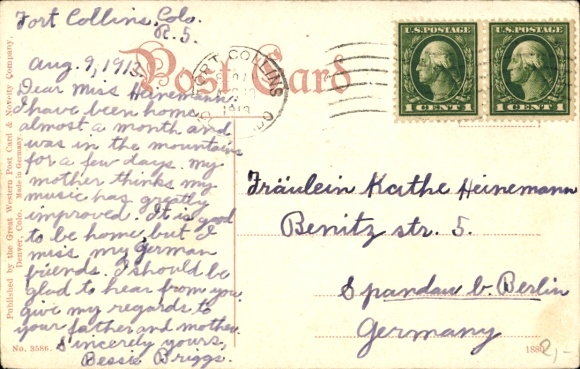 Fort Collins, Colo.
R. 5.
Aug. 9, 1913
Dear Miss Heinemann
I have been home
almost a month and
was in the mountains
for a few days. my
mother thinks my
music has greatly
improved. It is good
to be home, but I
miss my German
friends. I should be
glad to hear from you
give my regards to
your father and mother.
Sincerely yours,
Bessie Briggs.
Post Card
FORT COLLINS
1913
U.S. POSTAGE
1 CENT 1
U.S. POSTAGE
1 CENT 1
Fräulein Kathe Heinemann
Benitz str. 5.
Spandau b. Berlin
Germany
Published by the Great Western Post Card & Novelty Company,
Denver, Colo. Made in Germany.
No. 3586.
2,-